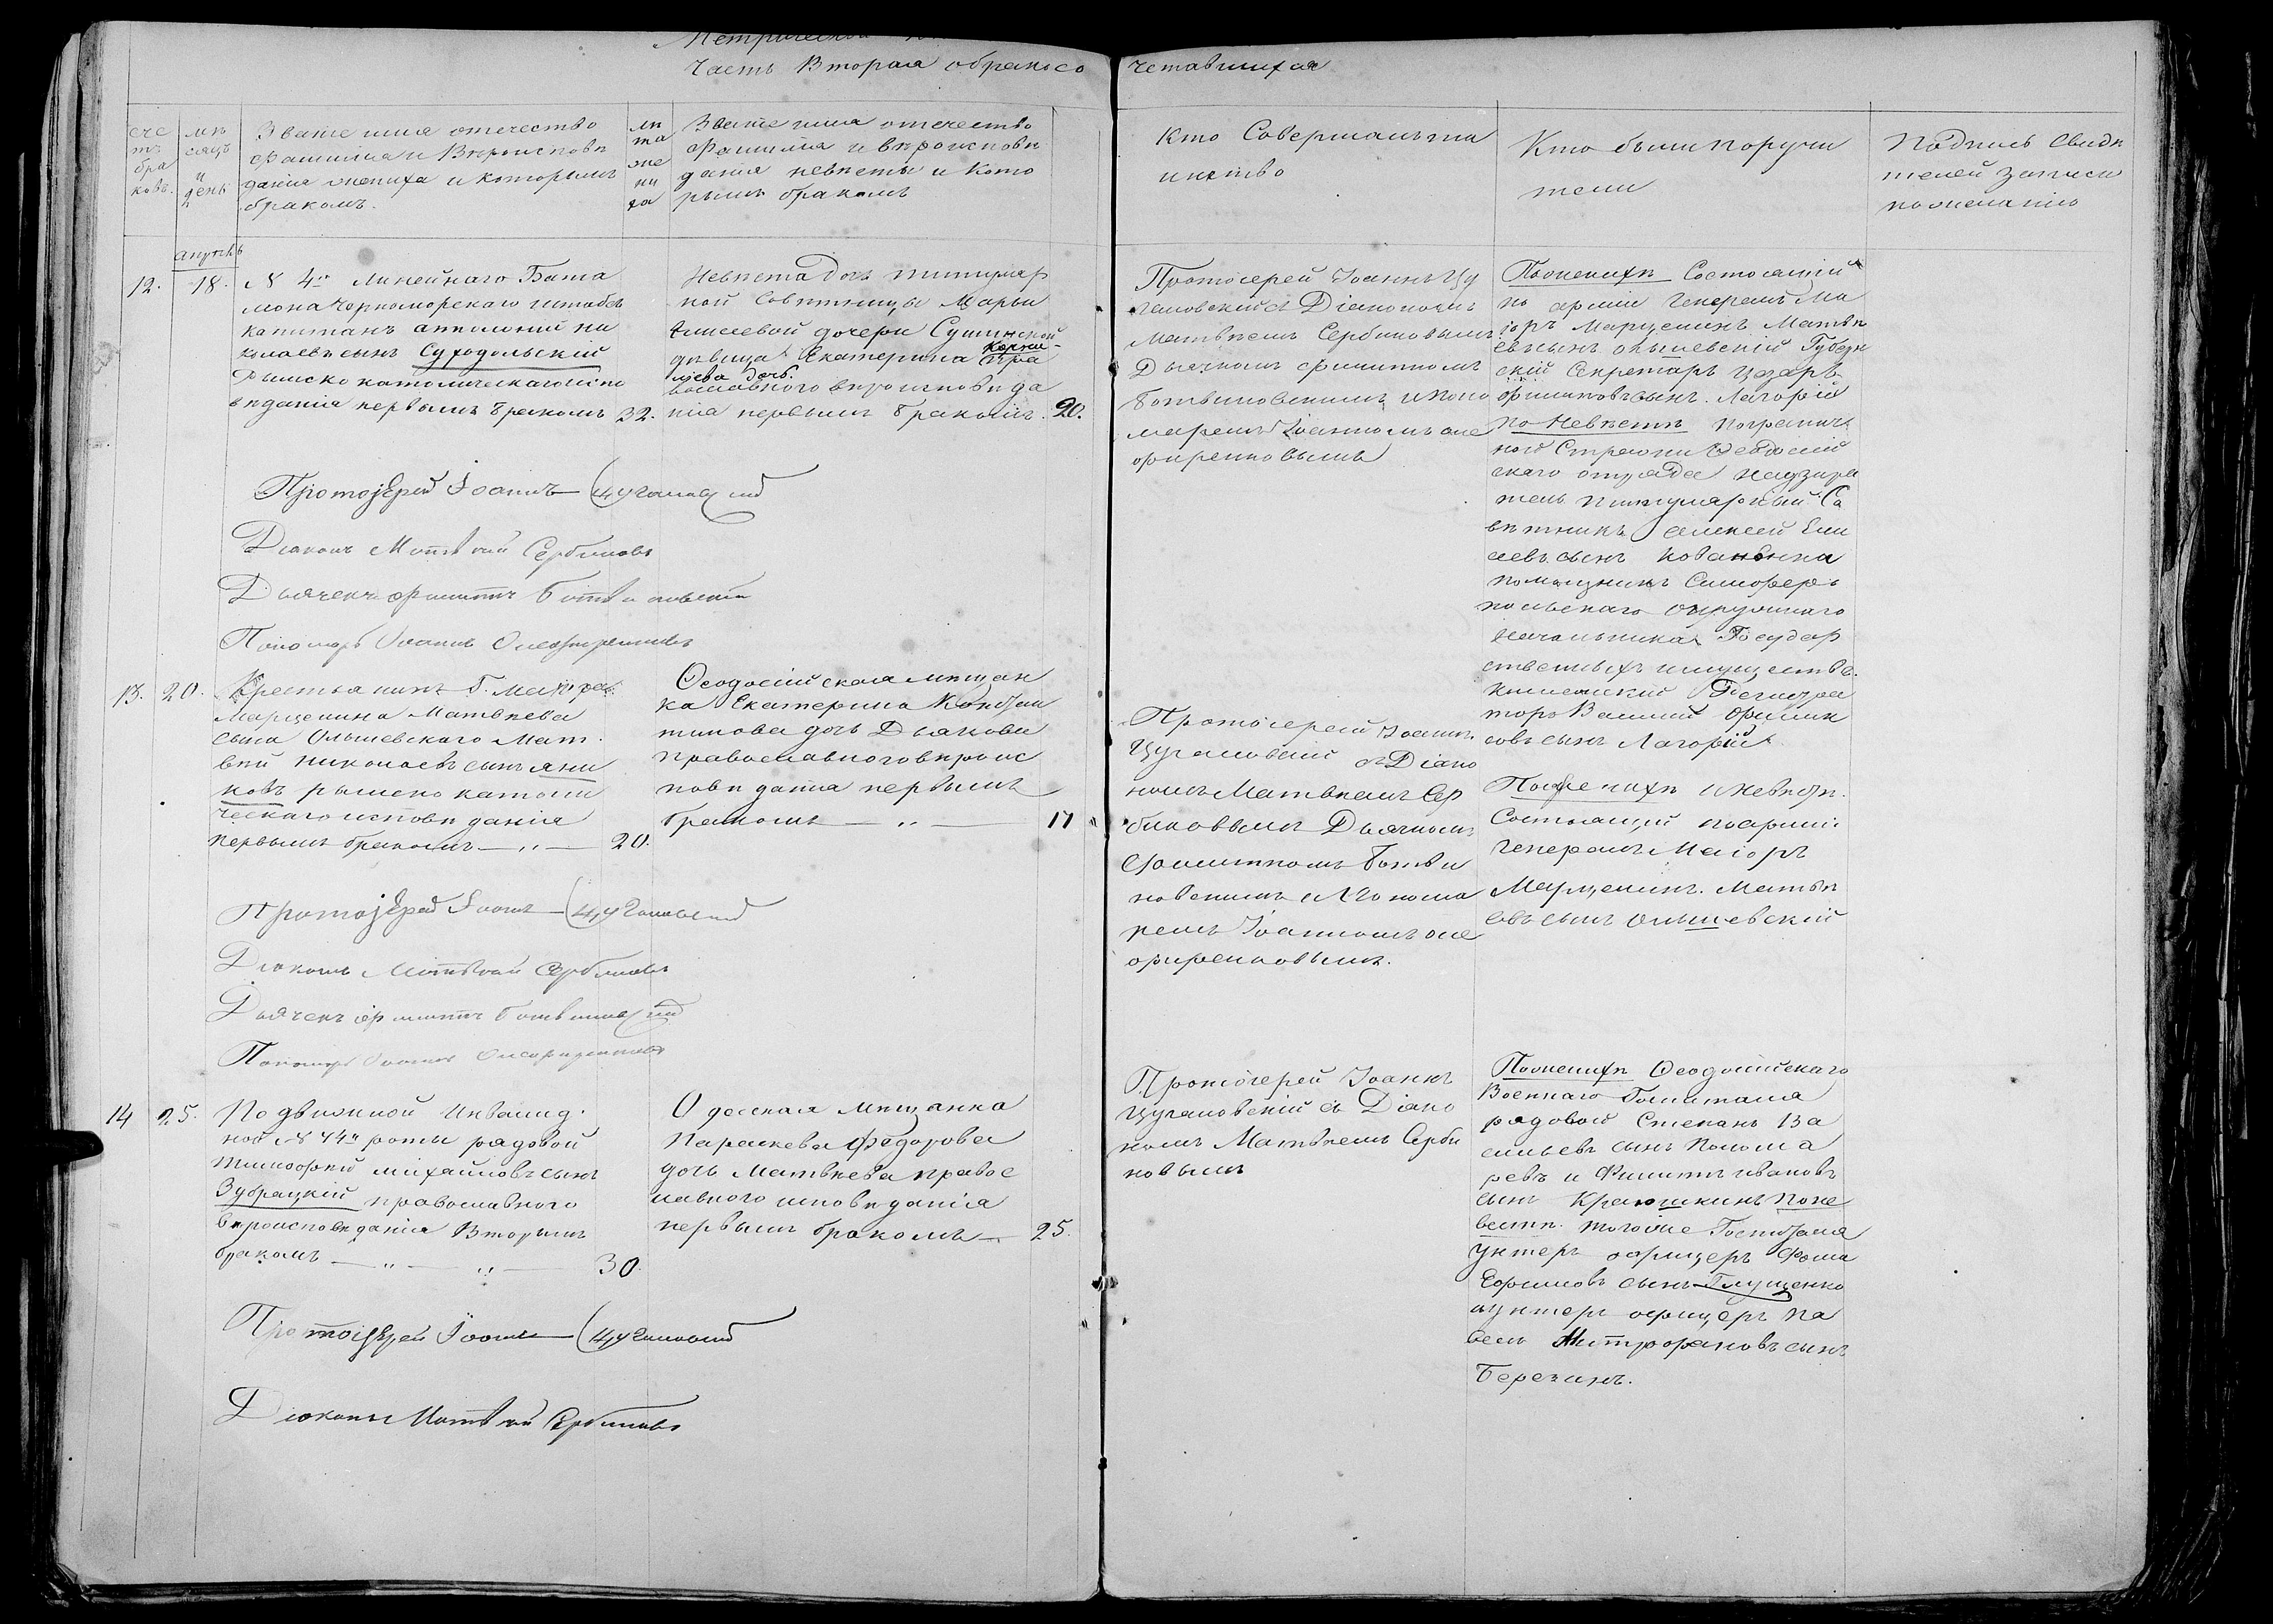 Часть Вторая о бракосо четавшихся
сче
тъ
бра
ковъ.
мѣ
сяцъ
и
день
Званіе имя отечество
фамилія и Вѣроисповѣ
данія жениха и которымъ
бракомъ.
лѣ
та
же
ни
ха
Званіе имя отечество
фамилія и вѣроисповѣ
данія невѣсты и кото
рымъ бракомъ
Кто Совершалъ та
инство
Кто были поручи
тели
Подпись Свидѣ
телей записи
пожеланію
апрѣль
12. 18.
№ 4го Линейнаго Бата
ліона Черноморскаго штабсъ
капитанъ апполоній ни
колаевъ сынъ Суходольскій
Римско католическаго испо
вѣданія первымъ бракомъ 32.
Невѣста Дочь титуляр
ной Совѣтницы Марьи
дочери Сушинской
дѣвица Екатерина Корни-
лова дочь. пра
вославного вѣроисповѣда
нія первымъ бракомъ. 20.
Протоіерей Іоаннъ Цу
гановскій съ Діакономъ
Матвѣемъ Сербиновымъ
Дьячкомъ Филиппомъ
Ботвиновскимъ и поно
маремъ Іоанномъ оле
фиренковымъ
Поженихѣ Состоящій
по арміи Генералъ Ма
іоръ Марцелинъ Матвѣ
евъ сынъ ольшевскій Губерн
скій Секретарь Цезарь
филиповъ сынъ Лагорій
по Невѣстѣ пограничн
ной Стражи Феодосій
скаго отряда надзира
тель титулярный Со
вѣтникъ алексей Ели
сеевъ сынъ Кованько
помощникъ Симферо
польскаго окружнаго
Начальника Государ
ственныхъ имуществъ.
колежскій Регистра
торъ Василій Филип
овъ сынъ Лагорій
Протоіерей Іоаннъ Цугановскій
Діаконъ Матвѣй Сербиновъ
Дьячекъ филиппъ Ботвиновскій
Пономарь Іоаннъ Олефиренковъ
13. 20.
Крестьянинъ Г. Маіора
Марцелина Матвѣева
сына Ольшевскаго Мат
вѣй николаевъ сынъ яни
ковъ римско католи
ческаго исповѣданія
первымъ бракомъ — „ — 20.
Феодосійская мѣщан
ка Екатерина Констан
тинова дочь Дьякова
православного вѣроис
повѣданія первымъ
бракомъ — „ — 17
Протоіерей Іоаннъ
Цугановскій съ Діако
номъ Матвѣемъ Сер
биновымъ Дьячкомъ
Филиппомъ Ботви
новскимъ и Понома
ремъ Іоанномъ оле
фиренковымъ.
Поженихѣ и невѣстѣ.
Состоящій поарміи
генералъ Маіоръ
Марцелинъ. Матвѣ
евъ сынъ ольшевскій
Протоіерей Іоаннъ Цугановскій
Діаконъ Матвѣй Сербиновъ
Дьячекъ филиппъ Ботвиновскій
Пономарь Іоаннъ Олефиренковъ
14 25.
Подвижной Инвалид
ной № 44й роты рядовой
тимофѣй михайловъ сынъ
Зубрацкій православного
вѣроисповѣданія Вторымъ
бракомъ — „ — „ — 30.
Одесская мѣщанка
Параскева Федорова
дочь Матвѣева правос
лавного исповѣданія
первымъ бракомъ — 25.
Протоіерей Іоаннъ
Цугановскій съ Діако
номъ Матвѣемъ Серби
новымъ
Поженихѣ Феодосійскаго
Военнаго Госпиталя
рядовой Степанъ Ва
сильевъ сынъ Понома
ревъ и Филиппъ ивановъ
сынъ Краюшкинъ поне
вестѣ. тогоже Госпиталя
унтеръ офицеръ Фома
Ефимовъ сынъ Глущенко
иунтеръ офицеръ Па
велъ Митрофановъ сынъ
Березинъ.
Протоіерей Іоаннъ Цугановскій
Діаконъ Матвѣй Сербиновъ